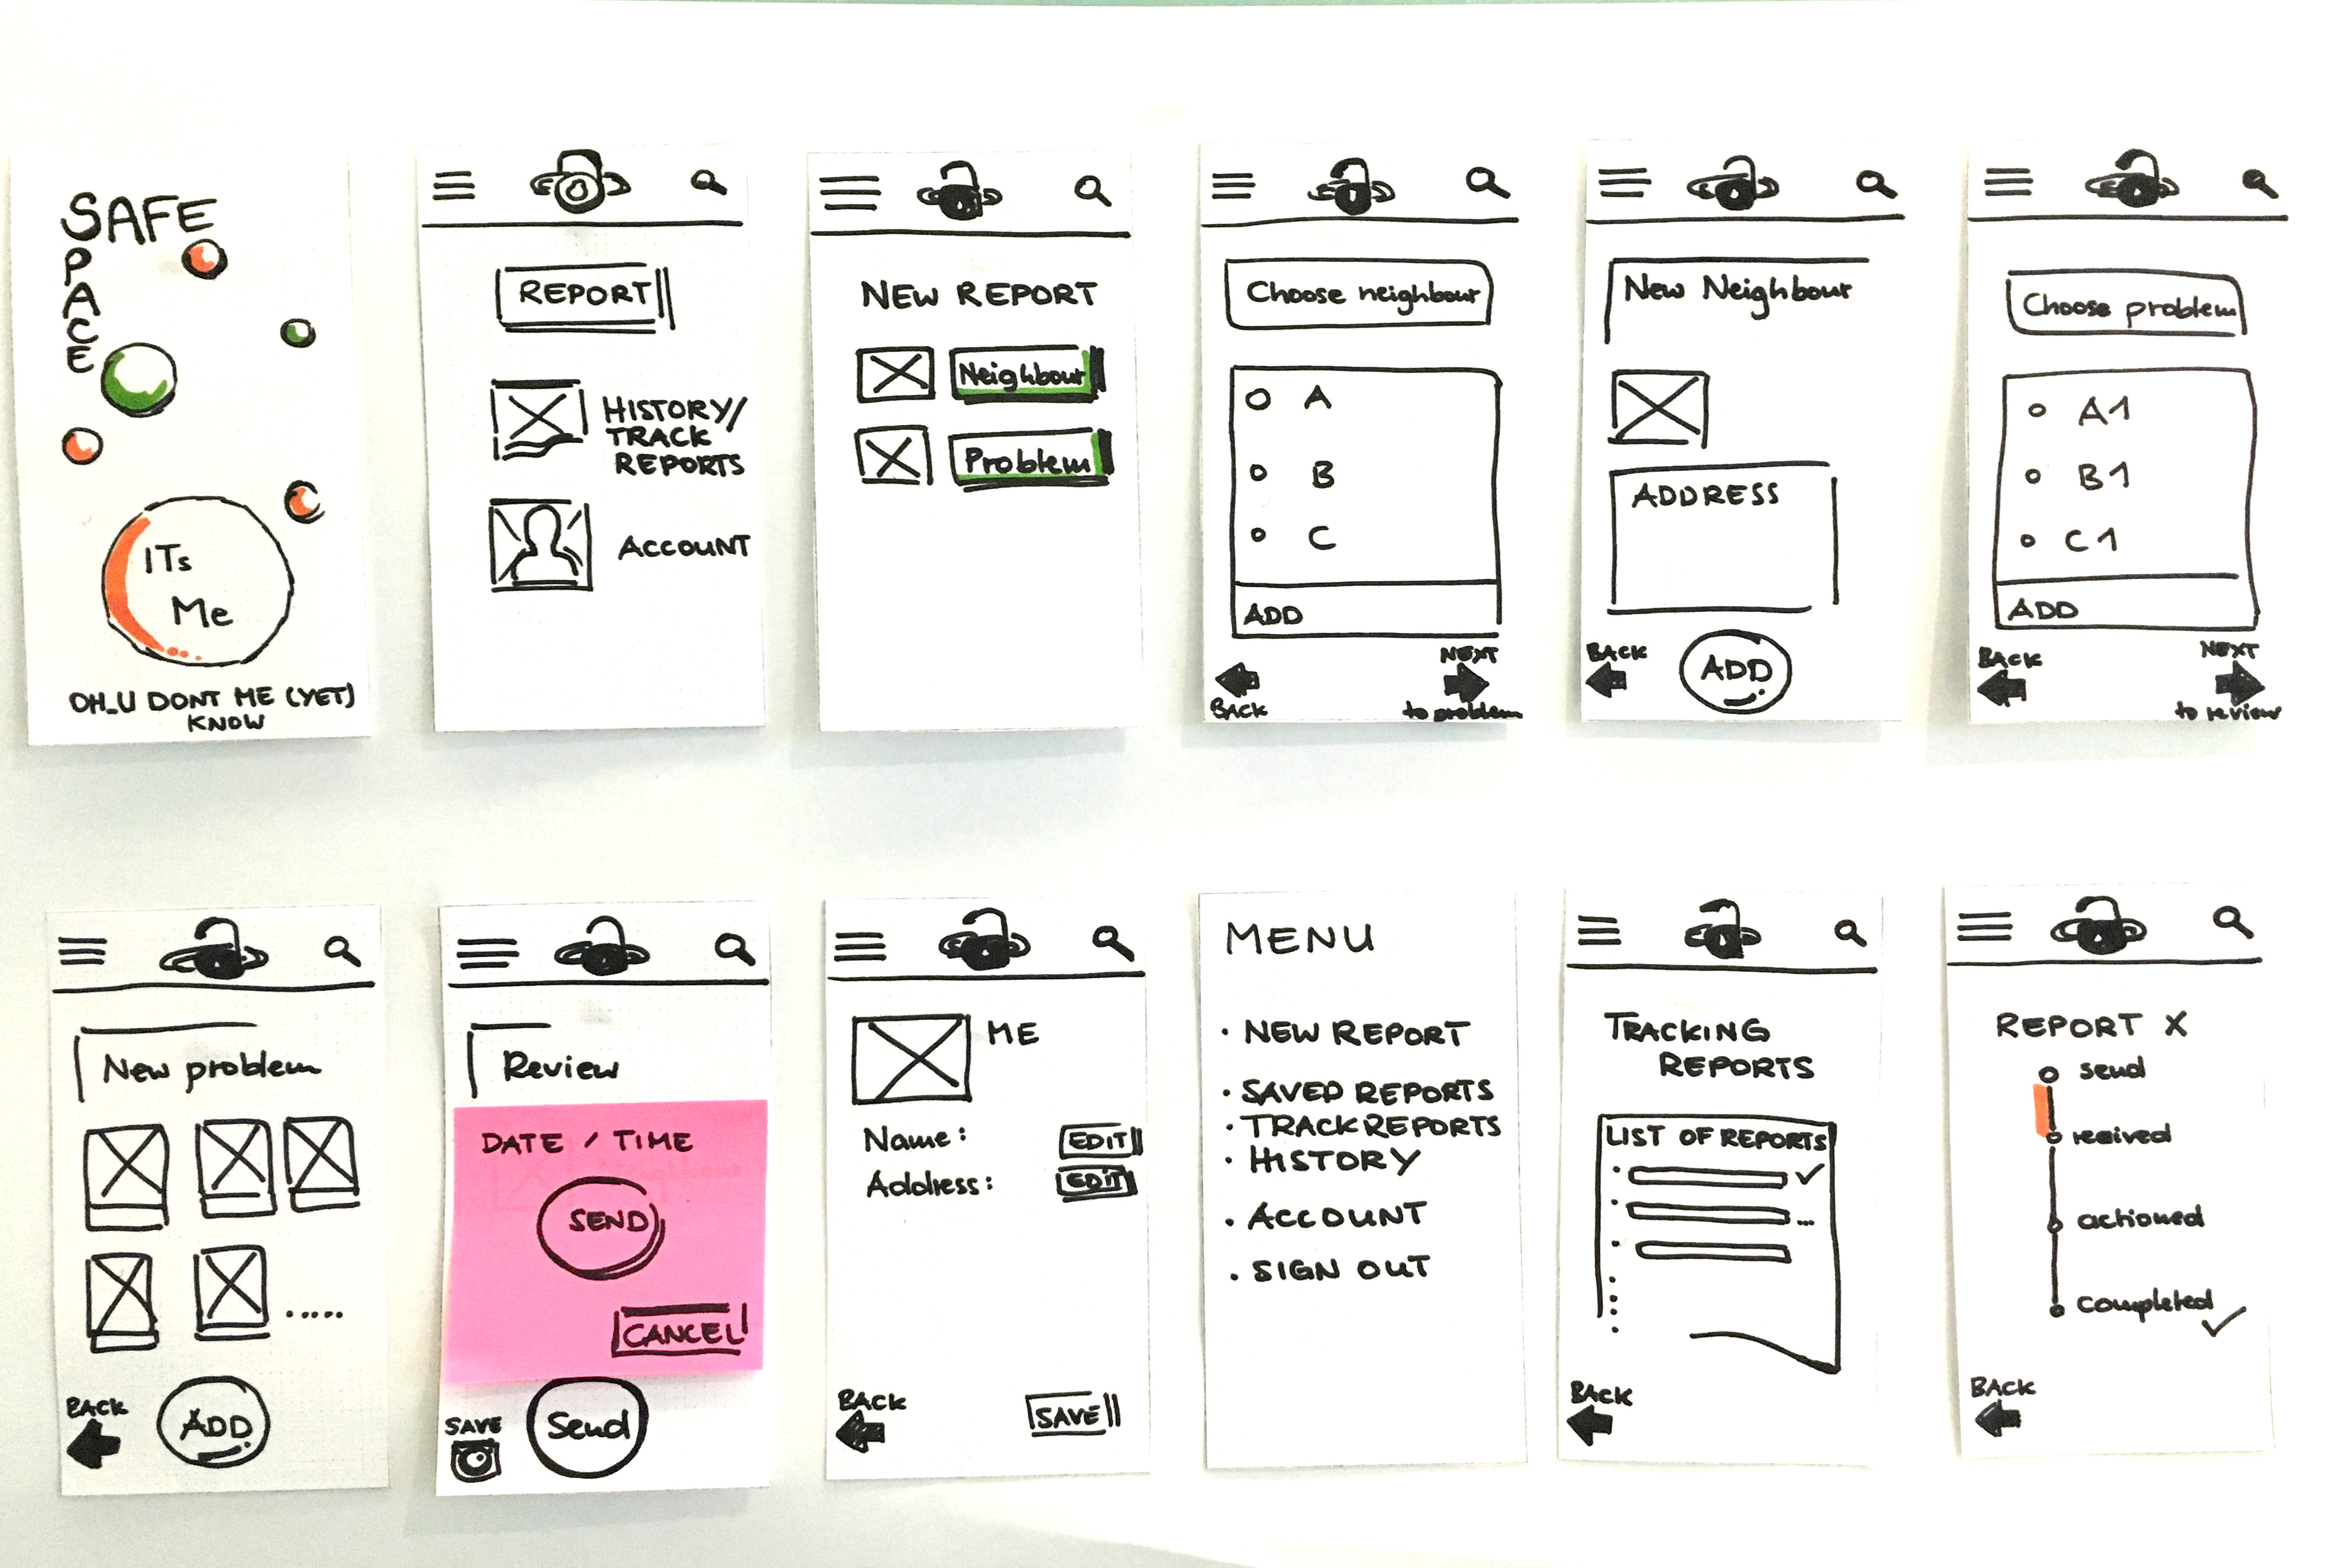 SAFE
SPACE
ITs
Me
OH_U DONT ME (YET)
KNOW
REPORT
HISTORY/
TRACK
REPORTS
ACCOUNT
NEW REPORT
Neighbour
Problem
Choose neighbour
A
B
C
ADD
BACK
NEXT
to problem
New Neighbour
ADDRESS
BACK
ADD
Choose problem
A1
B1
C1
ADD
BACK
NEXT
to review
New problem
.....
BACK
ADD
Review
DATE / TIME
SEND
CANCEL
SAVE
Send
ME
Name: EDIT
Address: EDIT
BACK
SAVE
MENU
· NEW REPORT
· SAVED REPORTS
· TRACK REPORTS
· HISTORY
· ACCOUNT
· SIGN OUT
TRACKING
REPORTS
LIST OF REPORTS
...
BACK
REPORT X
send
received
actioned
completed
BACK